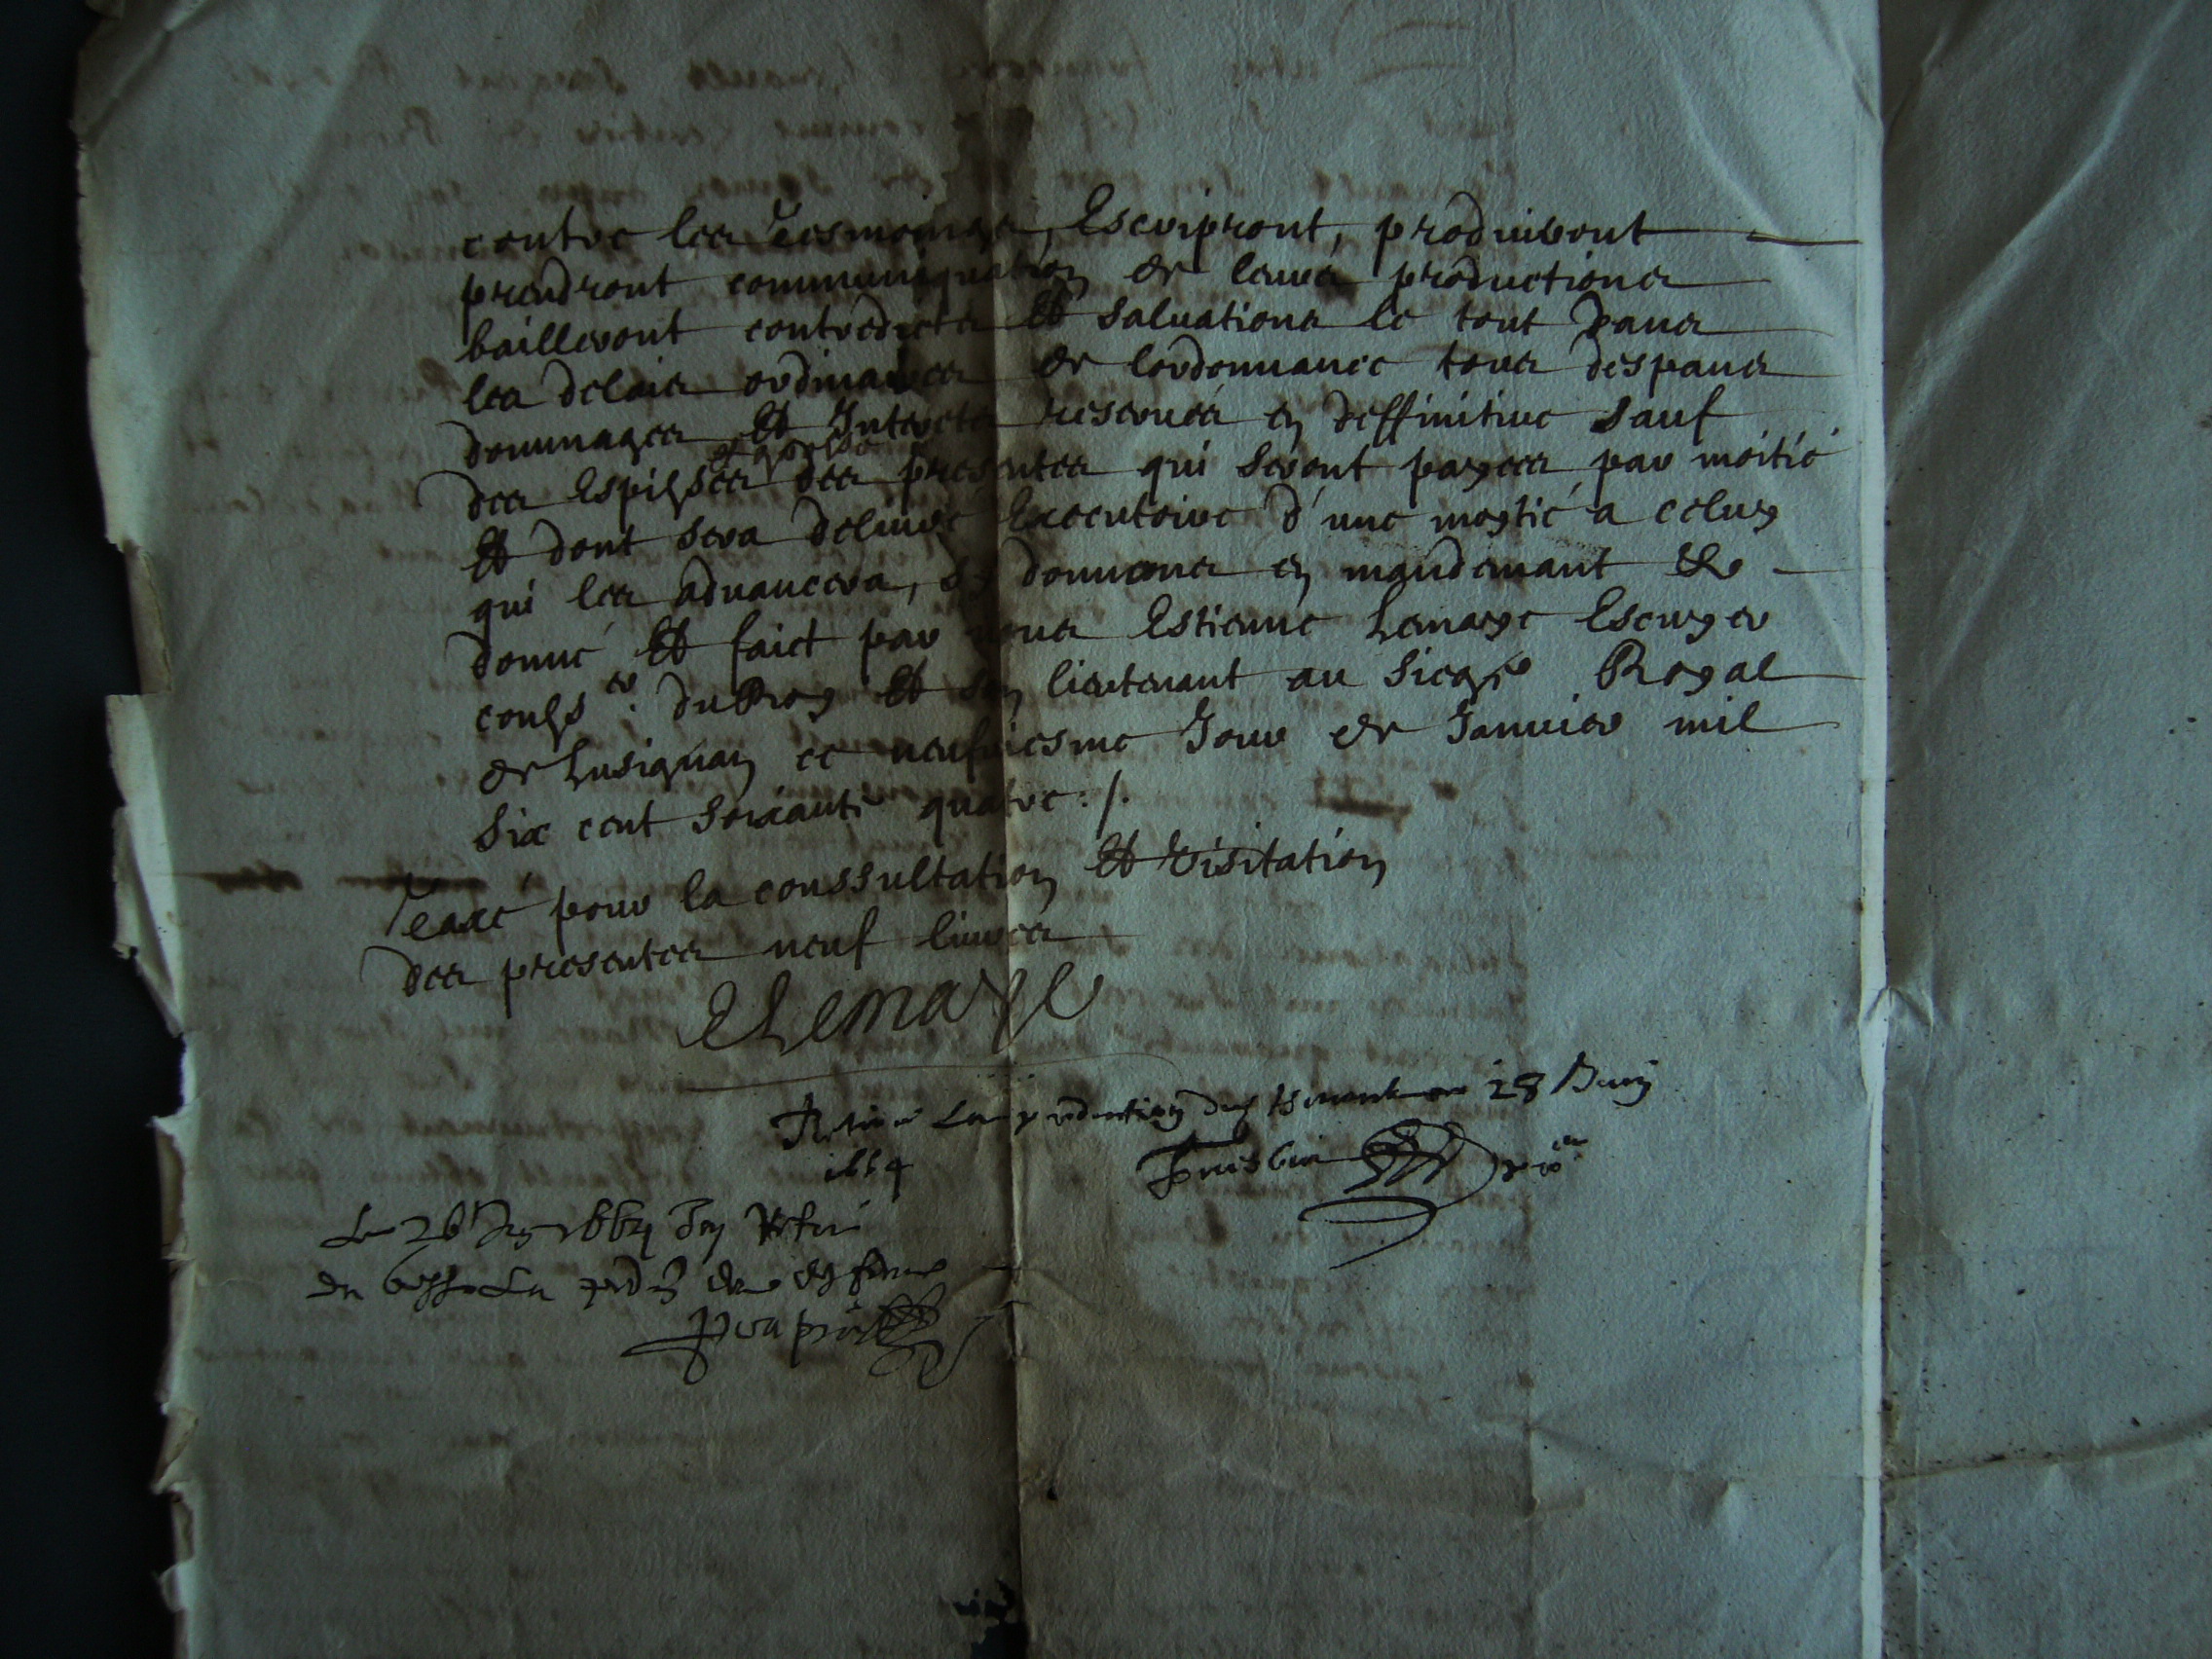 contre les tesmoings, Escripront, produiront
prendront communiquation de leurs productions
bailleront contredicts Et saluations le tout dans
les delais ordinaires de lordonnance tous despans
dommages Et Interets reserués en deffinitiue sauf
des Espisses des presentes qui seront payees par moitié
Et dont sera deliuré Executoire d'une moytié a celuy
qui les aduancera, Sy donnons en mandemant &c
donné Et faict par nous Estienne Lemaye Escuyer
conser. du Roy Et son lieutenant au Siege Royal
de Lusignan ce neufuiesme Jour de Januier mil
six cent soixante quatre ./.
Taxé pour la conssultation Et Visitation
des presentes neuf liures
ELemaye
Retiré La production 28 Juin
1664
Le 26 Juin 1664 Jay Retiré
du